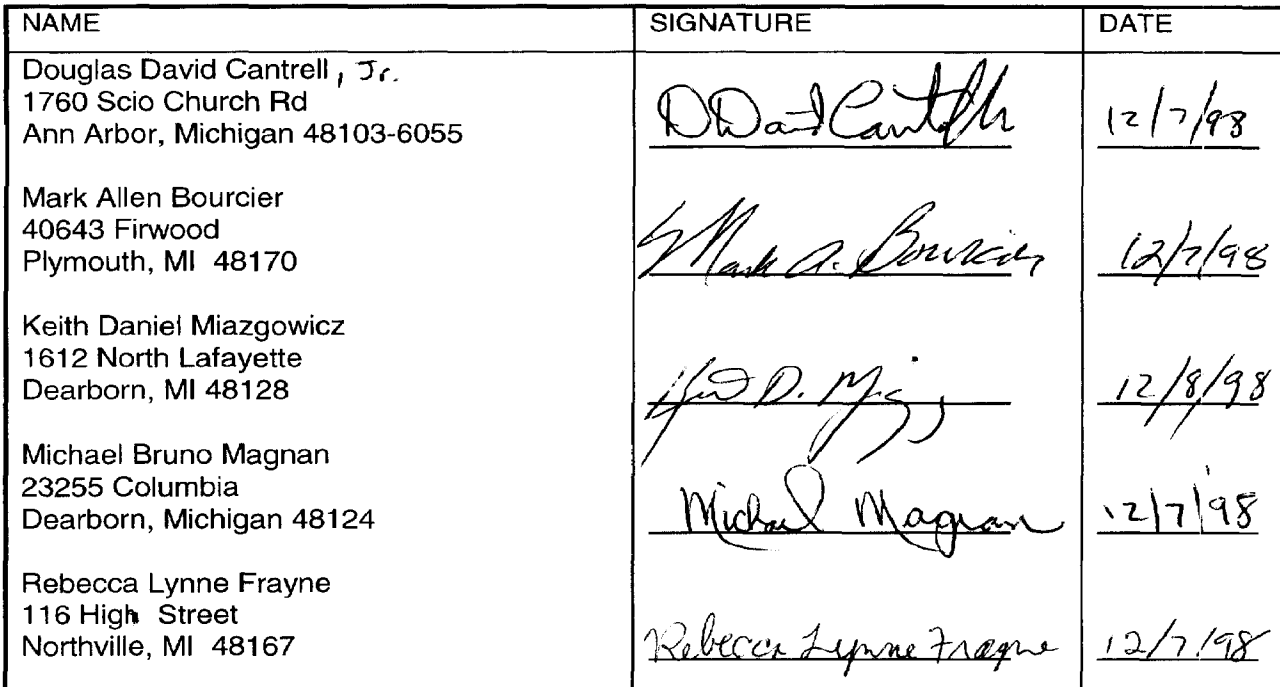 NAME SIGNATURE DATE
Douglas David Cantrell, Jr.
1760 Scio Church Rd
Ann Arbor, Michigan 48103-6055
D David Cantrell 12/7/98
Mark Allen Bourcier
40643 Firwood
Plymouth, MI 48170
Mark A. Bourcier 12/7/98
Keith Daniel Miazgowicz
1612 North Lafayette
Dearborn, MI 48128
D. 12/8/98
Michael Bruno Magnan
23255 Columbia
Dearborn, Michigan 48124
Michael Magnan 12/7/98
Rebecca Lynne Frayne
116 High Street
Northville, MI 48167
Rebecca Lynne Frayne 12/7/98